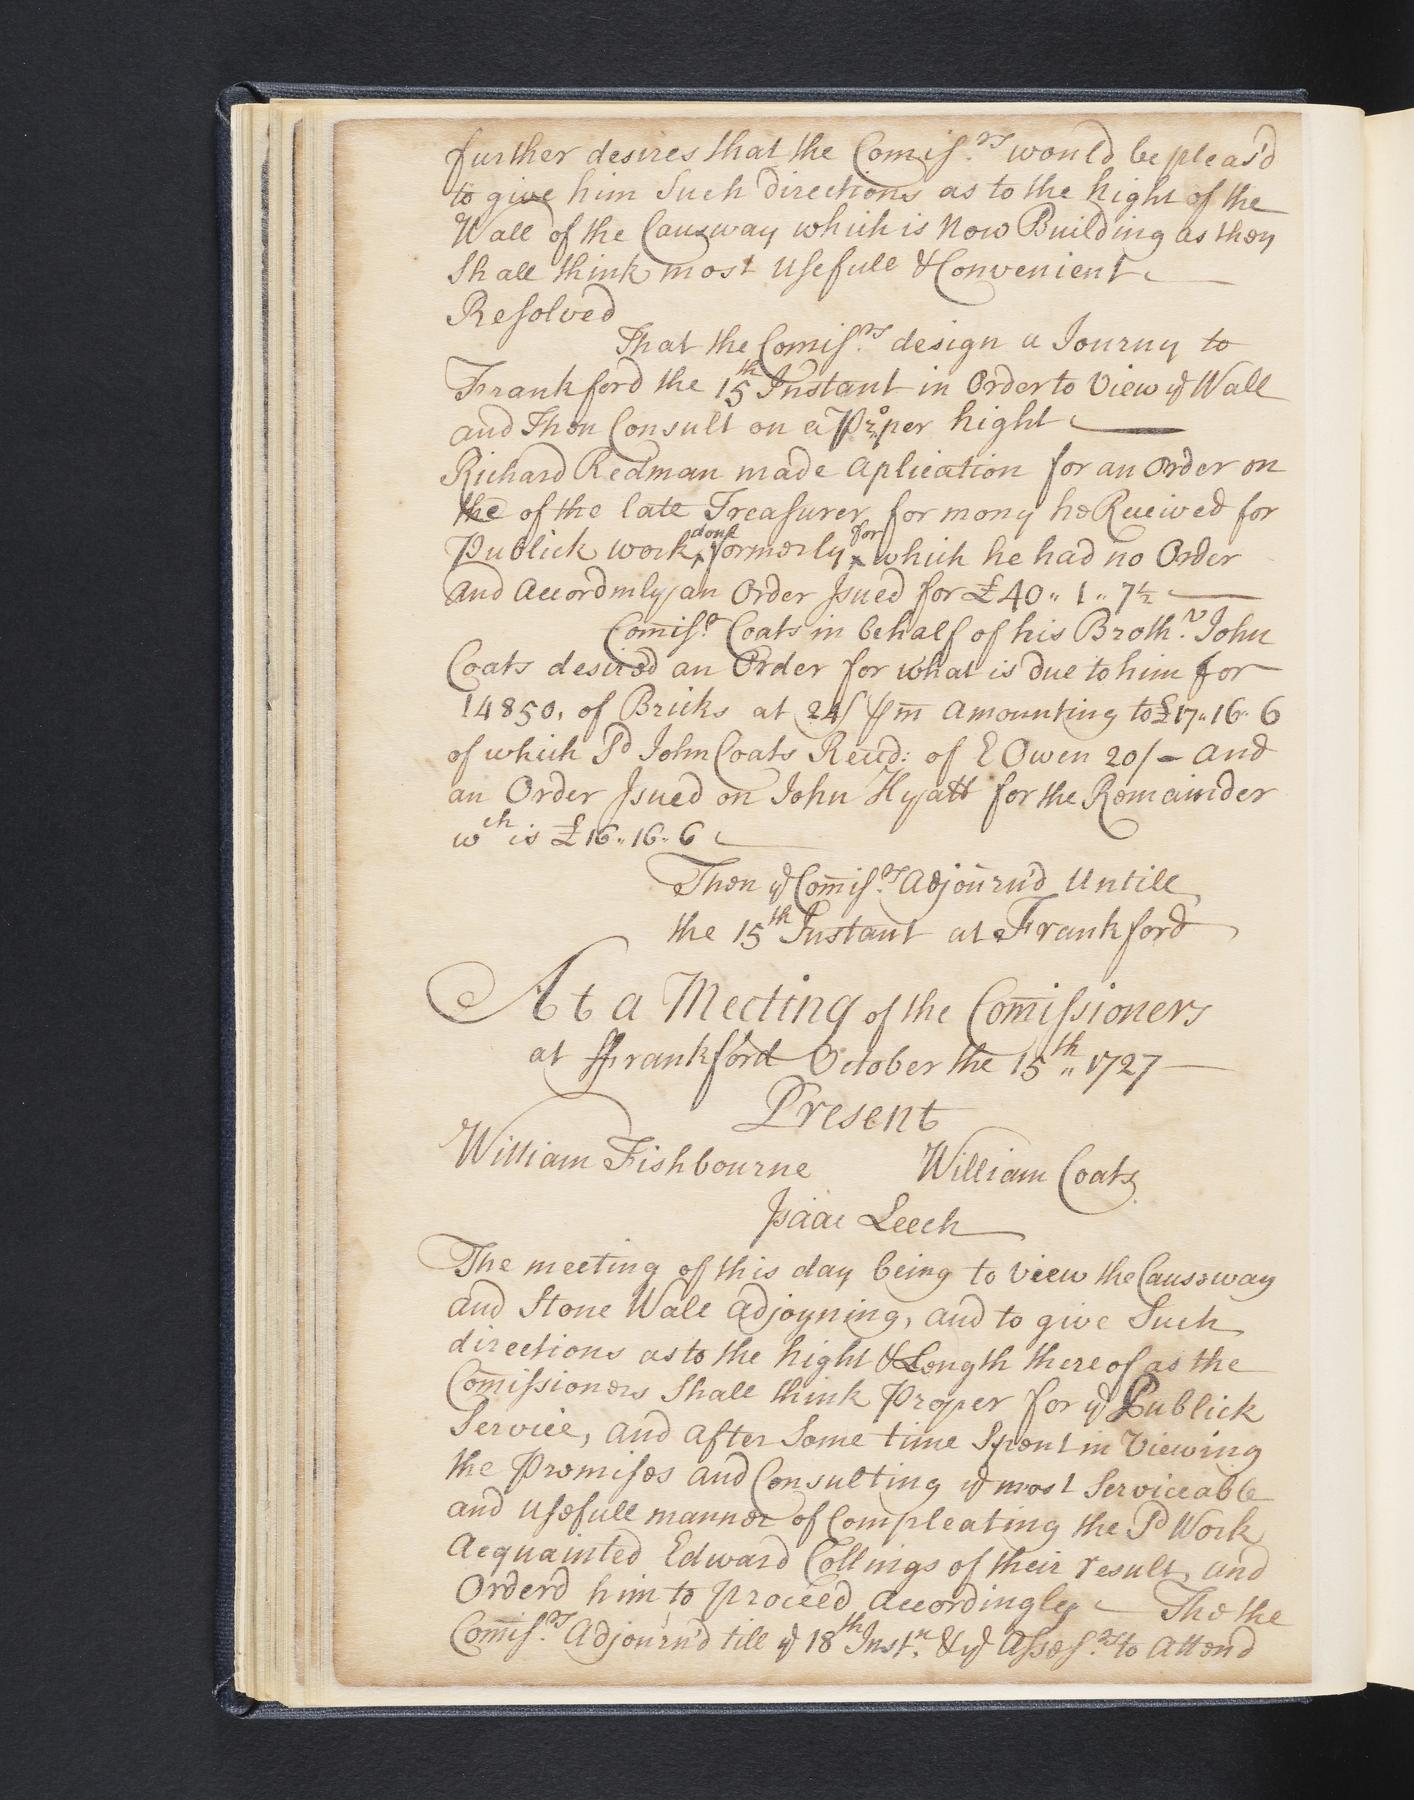 further desires that the Comis.rs would be pleas'd
to give him Such directions as to the hight of the
Wall of the Causway which is Now Building as they
Shall think most Usefull & Convenient
Resolved
That the Comis.rs design a Journy to
Frankford the 15th Instant in Order to View ye Wall
and Then Consult on a Proper hight
Richard Redman made Aplication for an Order on
the of the late Treasurer for mony he Received for
Publick work done formerly for which he had no Order
and Accordinly an Order Isued for £40" 1" 7½
Comis.r Coats in behalf of his Broth.r John
Coats desired an Order for what is due to him for
14850, of Bricks at 24/ ℔ m̄ Amounting to £17" 16" 6
of which Sd John Coats Recd: of E Owen 20/- and
an Order Isued on John Hyatt for the Remainder
wch is £16" 16" 6
Then ye Comis.rs Adjourn'd Untill
the 15th Instant at Frankford
At a Meeting of the Comissioners
at Frankford October the 15th" 1727
Present
William Fishbourne William Coats
Isaac Leech
The meeting of this day being to view the Causeway
and Stone Wall Adjoyning, and to give Such
directions as to the hight & Length thereof as the
Comissioners Shall think Proper for ye Publick
Service, and after Some time Spent in Viewing
the Premises and Consulting ye most Serviceable
and Usefull manner of Compleating the Sd Work
Acquainted Edward Collings of their result, and
Orderd him to proceed Accordingly The the
Comis.rs Adjourn'd till ye 18th Instn. & ye Asses.rs to Attend